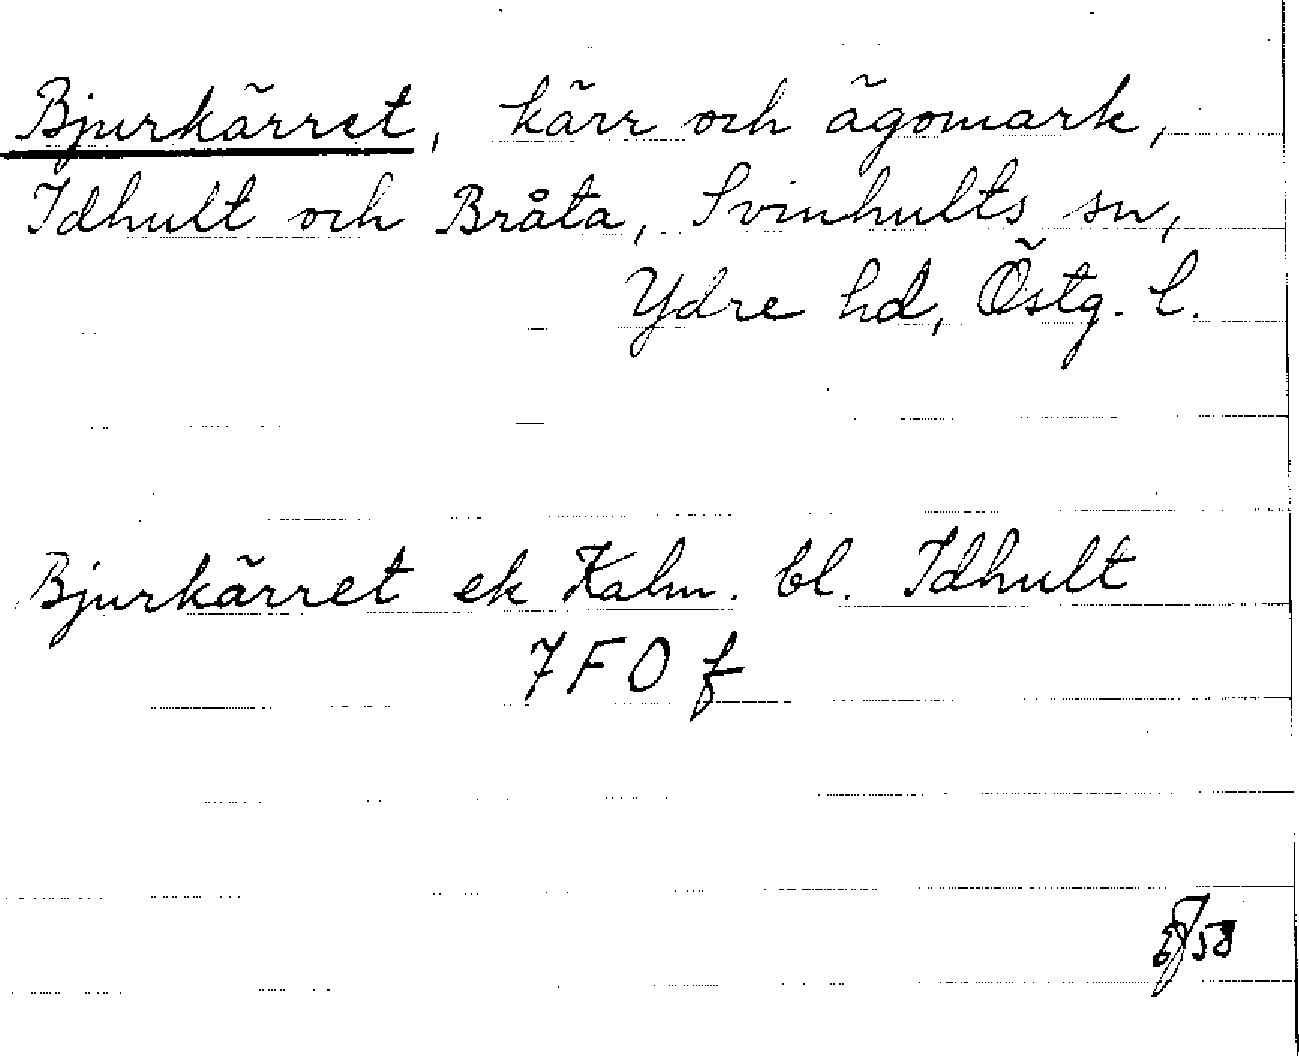 Bjurkärret, kärr och ägomark,
Idhult och Bråta, Svinhults sn,
Ydre hd, Östg. l.
Bjurkärret ek Kalm. bl. Idhult
7 F O f